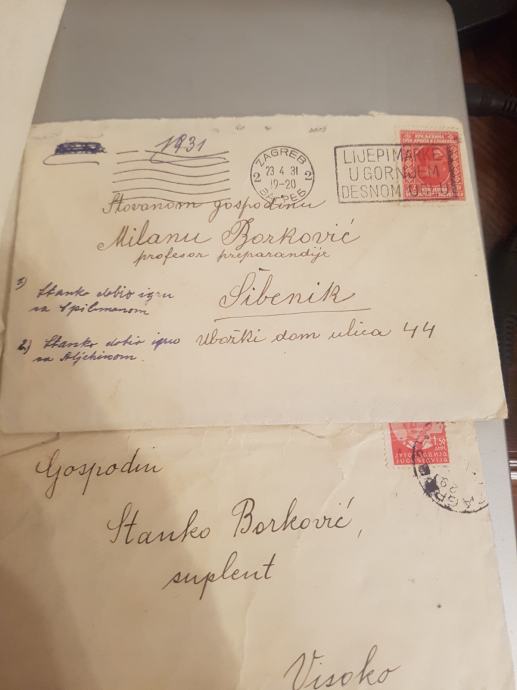 1931
ZAGREB
23 4 31
19-20
ЗАГРЕБ
2 2
LIJEPI MARKE
U GORNJEM
DESNOM
Štovanom gospodinu
Milanu Borković
profesor preparandije
Šibenik
Ubožki dom ulica 44
1) Stanko dobio igru
sa Spilmanom
2) Stanko dobio igru
sa Aljehinom.
1.50
Gospodin
Stanko Borković,
suplent
Visoko